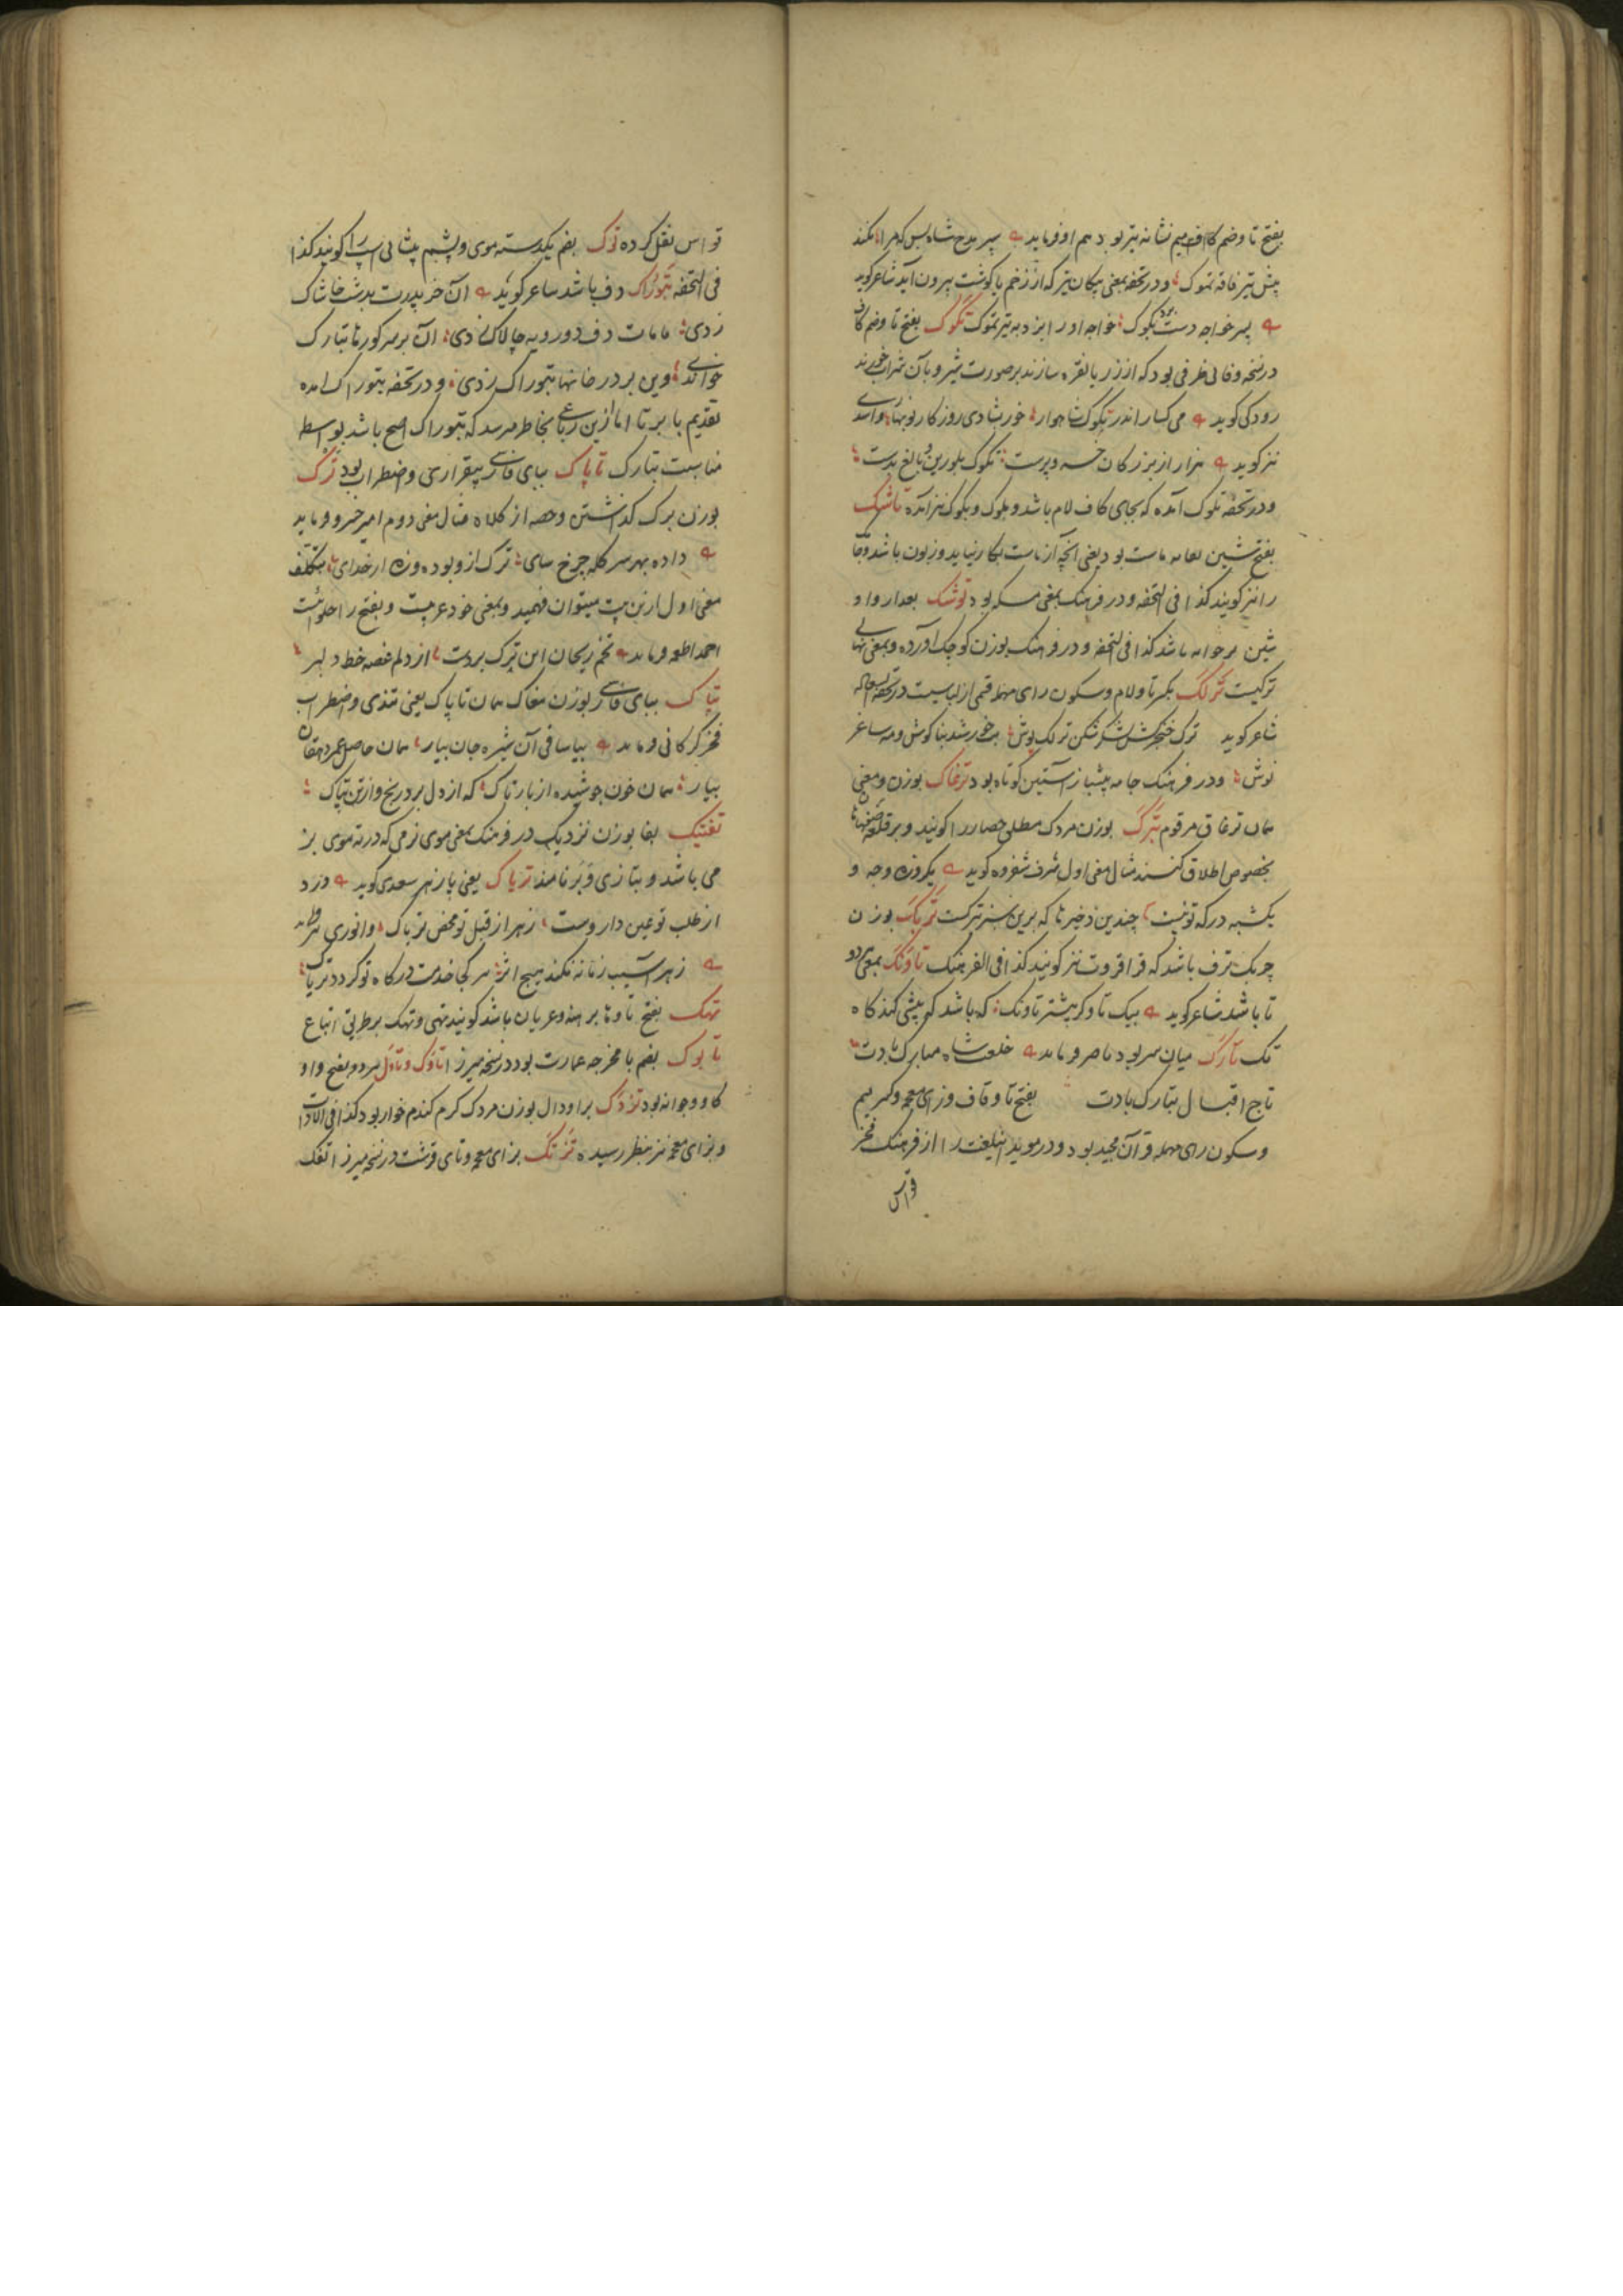 بفتح تا و ضم کاف میم نشانه تیر بود هم او فرماید پیر بدح شاه بس که مرا نکند
پیش تیر فاقه تموک و در تحفه بمعنی پیکان تیر که از زخم یا گوشت بیرون آید شاعر گوید
پسر خواجه دست برد بکوک خواجه او را بزد به تیر تموک تکوک بفتح تا و ضم کاف
در نسخه وفائی ظرفی بود که از زر یا نقره سازند بر صورت شیر و بآن شراب خورند
رودکی گوید می کسار اندر تکوک شاهوار خور بشادی روزگار نوبهار و اسدی
نیز گوید هزار از بزرگان خسرو پرست تکوک بلورین و بالغ بدست
و در تحفه تلوک آمده که بجای کاف لام باشد و بلوک و بکوک نیز آمده تاشک
بفتح شین بود یعنی آنچه از ماست بکار نیاید و زبون باشد
را نیز گویند کذا فی التحفه و در فرهنگ بمعنی مسکه بود توشک بعد از واو
شین باشد کذا فی التحفه و در فرهنگ بوزن کوچک آورده و بمعنی
ترکیست ترلک بکسر تا و لام و سکون رای مهمله قسمی از لباسیست در تحفه
شاعر گوید ترک خنجرکش لشکر شکن ترلک پوش بت خورشید بناگوش و مه ساغر
نوش و در فرهنگ جامه پیشباز آستین کوتاه بود ترغاک بوزن و معنی
همان ترغاق مرقوم تبرک بوزن مردک مطلق حصار را گویند و بر قلعه صفهان
بخصوص اطلاق کنند مثال معنی اول شرف شفروه گوید یکروزه وجه و
یکشبه درگه تو نیست چندین ذخیرها که برین سبز تبرکست تربک بوزن
چربک ترف باشد که قراقروت نیز گویند کذا فی الفرهنگ تاونک بمعنی دو
تا باشد شاعر گوید بیک تا و کر بیشتر تاونک که باشد که پیشی کند کاه
تک تارک میان سر بود ناصر فرماید خلعت شاه مبارک بادت
تاج اقبال بتارک بادت بفتح تا و قاف و زای معجمه و کسر میم
و سکون رای مهمله قرآن مجید بود و در موید این لغت را از فرهنگ فخر
قواس
قواس نقل کرده توک بضم یکدسته موی و پشم پیشانی اسپ را گویند کذا
فی التحفه تبوراک دف باشد شاعر گوید آن خر پدرت بدشت خاشاک
زدی مامات دف دورویه چالاک زدی آن بر سر گورها تبارک
خواندی وین بر در خانها تبوراک زدی و در تحفه بتوراک آمده
بتقدیم با بر تا اما ازین رباعی بخاطر میرسد که تبوراک اصح باشد بواسطه
مناسبت تبارک تاپاک ببای فارسی بیقراری و اضطراب بود ترک
بوزن برک گذاشتن و حصه از کلاه مثال معنی دوم امیر خسرو فرماید
داده بهر سر کله چرخ سای ترک ازو بوده و ره از خدای بتکلف
معنی اول ازین بیت میتوان فهمید و بمعنی خود عربیست و بفتح را حلوائیست
احمد اطعمه فرماید تخم ریحان این ترک بردت از دلم غصه خط دلبر
تپاک ببای فارسی بوزن مغاک همان تاپاک یعنی تندی و اضطراب
فخر گرگانی فرماید بیا ساقی آن شیره جان بیار همان حاصل عمر دهقان
بیار همان خون جوشیده از بار تاک که از دل برد رنج و از تن تپاک
تفتیک بفا بوزن نزدیک در فرهنگ بمعنی موی نرمی که در ته موی بز
می باشد و بتازی وبر نامند تریاک یعنی پازهر سعدی گوید درد
از طلب تو عین داروست زهر از قبل تو محض تریاک و انوری فرماید
زهر آسیب زمانه نکند هیچ اثر هر کجا خدمت درگاه تو گردد تریاک
تهک بفتح تا و ها برهنه و عریان باشد گویند تهی و تهک بر طریق اتباع
تابوک بضم با مخرجه عمارت بود در نسخه میرزا تاوک و تاول هر دو بفتح واو
گاو جوانه بود تردک برا و دال بوزن مردک کرم گندم خوار بود کذا فی الادات
و بزای معجمه نیز بنظر رسیده تزنک بزای معجمه و تای قرشت در نسخه میرزا تفک